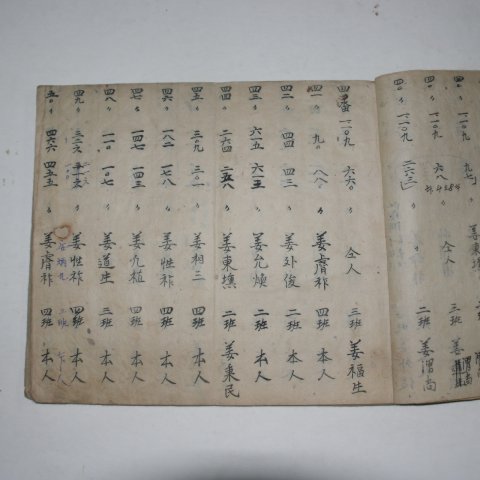 四〇 〃 一一〇九 仝人 三班
四〇 〃 一一〇九 二六三 二班 姜渭尚
一一〇九 六六〇 〃 仝人 三班 姜福生
四一 〃 九〇 八八 〃 姜膺祚 四班 本人
四二 〃 四四 四三 〃 姜外俊 四班 本人
四三 〃 六一五 六一 〃 姜允煥 二班 本人
四四 〃 二六四 二五八 〃 姜東壎 二班 姜秉民
四五 〃 三〇九 三〇一 〃 姜相三 四班 本人
四六 〃 一八二 一七八 〃 姜性祚 四班 本人
四七 〃 一四七 一四三 〃 姜九植 四班 本人
四八 〃 一一〇 一〇七 〃 姜道生 三班 本人
四九 〃 三二六 〃 姜性祚 四班 本人
五〇 〃 四六六 四五五 〃 姜膺祚 四班 本人